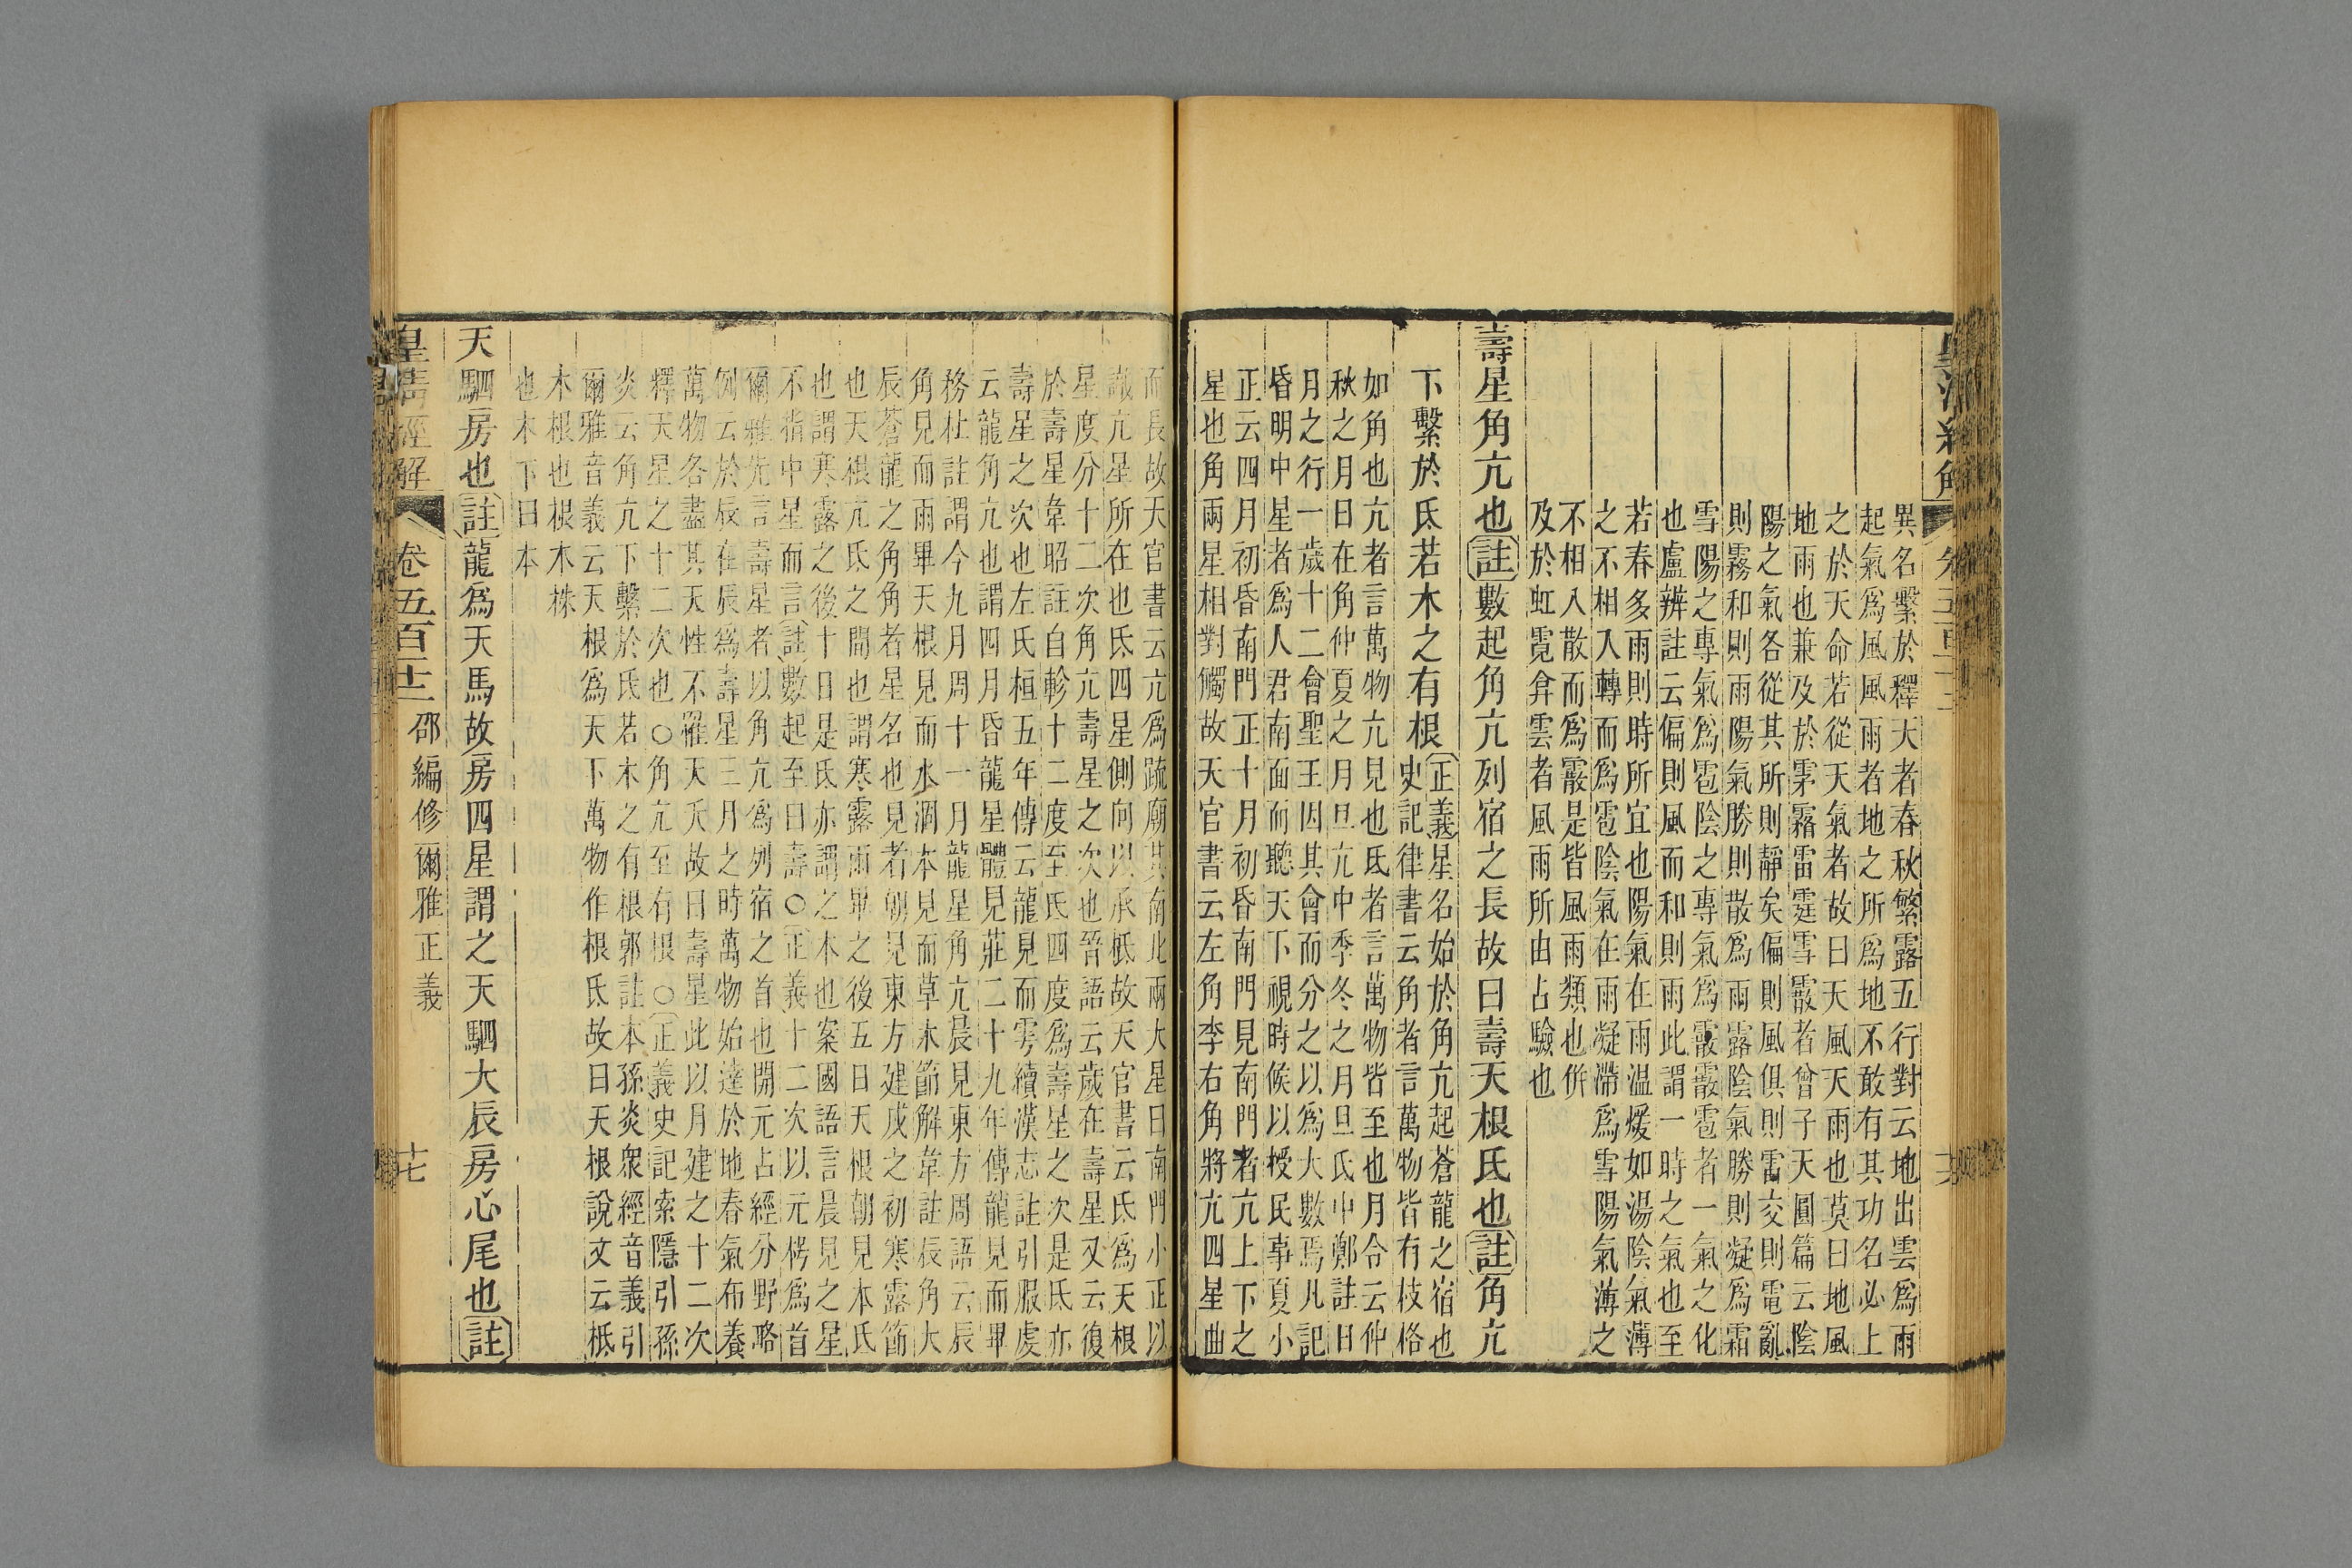 皇清經解
異名繫於釋天者春秋繁露五行對云地出雲爲雨
起氣爲風風雨者地之所爲地不敢有其功名必上
之於天命若從天氣者故曰天風天雨也莫曰地風
地雨也兼及於雺霧雷霆雪霰者曾子天圓篇云陰
陽之氣各從其所則靜矣偏則風俱則雷交則電亂
則霧和則雨陽氣勝則散爲雨露陰氣勝則凝爲霜
雪陽之專氣爲雹陰之專氣爲霰霰雹者一氣之化
也盧辨註云偏則風而和則雨此謂一時之氣也至
若春多雨則時所宜也陽氣在雨温煖如湯陰氣薄
之不相入轉而爲雹陰氣在雨凝滯爲雪陽氣薄之
不相入散而爲霰是皆風雨類也併
及於虹霓弇雲者風雨所由占驗也
壽星角亢也註數起角亢列宿之長故曰壽天根氐也註角亢
下繫於氐若木之有根正義星名始於角亢起蒼龍之宿也
史記律書云角者言萬物皆有枝格
如角也亢者言萬物亢見也氐者言萬物皆至也月令云仲
秋之月日在角仲夏之月旦亢中季冬之月旦氐中鄭註日
月之行一歲十二會聖王因其會而分之以爲大數焉凡記
昏明中星者爲人君南面而聽天下視時候以授民事夏小
正云四月初昏南門正十月初昏南門見南門者亢上下之
星也角兩星相對觸故天官書云左角李右角將亢四星曲
而長故天官書云亢爲疏廟其南北兩大星曰南門小正以
識亢星所在也氐四星側向以承柢故天官書云氐爲天根
星度分十二次角亢壽星之次也晉語云歲在壽星又云復
於壽星韋昭註自軫十二度至氐四度爲壽星之次是氐亦
壽星之次也左氏桓五年傳云龍見而雩續漢志註引服虔
云龍角亢也謂四月昏龍星體見莊二十九年傳龍見而畢
務杜註謂今九月周十一月龍星角亢晨見東方周語云辰
角見而雨畢天根見而水涸本見而草木節解韋註辰角大
辰蒼龍之角角者星名也見者朝見東方建戌之初寒露節
也天根亢氐之間也謂寒露雨畢之後五日天根朝見本氐
也謂寒露之後十日是氐亦謂之本也案國語言晨見之星
不指中星而言註數起至曰壽○正義十二次以元枵爲首
爾雅先言壽星者以角亢爲列宿之首也開元占經分野略
例云於辰在辰爲壽星三月之時萬物始達於地春氣布養
萬物各盡其天性不罹天夭故曰壽星此以月建之十二次
釋天星之十二次也○角亢至有根○正義史記索隱引孫
炎云角亢下繫於氐若木之有根郭註本孫炎衆經音義引
爾雅音義云天根爲天下萬物作根氐故曰天根說文云柢
木根也根木株
也木下曰本
天駟房也註龍爲天馬故房四星謂之天駟大辰房心尾也註
皇清經解 卷五百十二 邵編修爾雅正義 十七